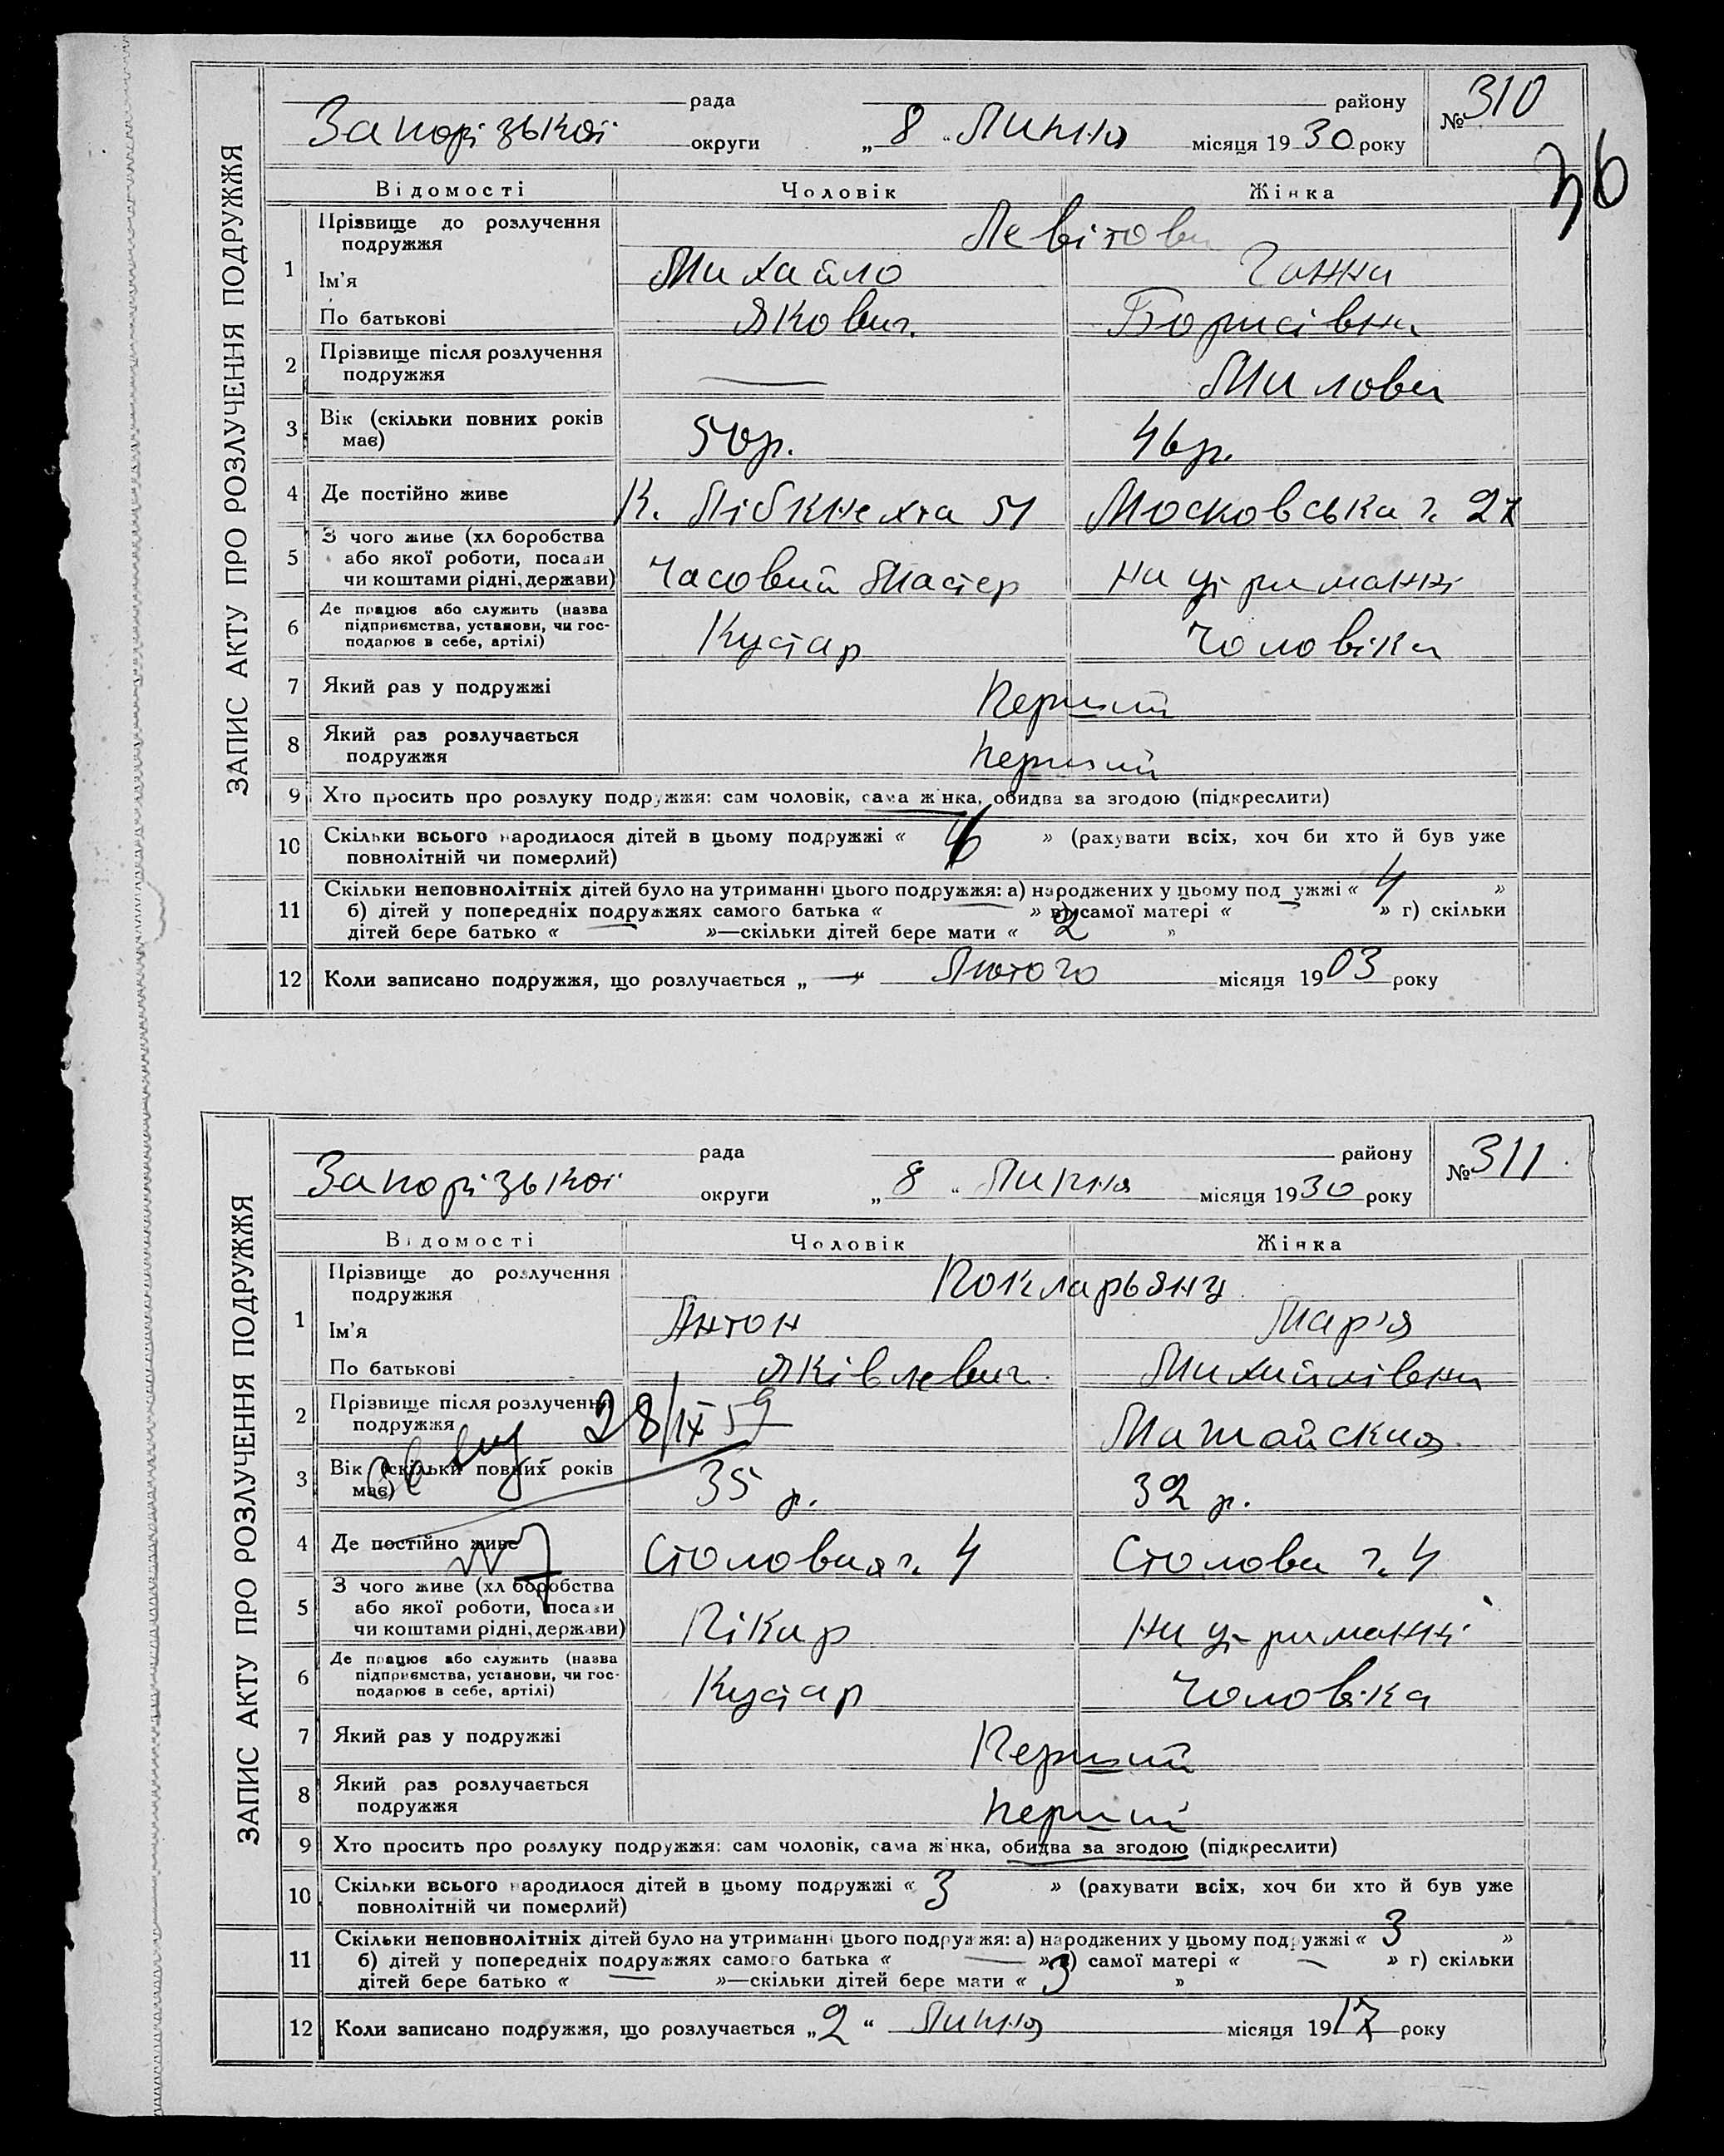 ЗАПИС АКТУ ПРО РОЗЛУЧЕННЯ ПОДРУЖЖЯ
рада району № 310
Запорізької округи „ 8 “ Липня місяця 1930 року
36
Відомості Чоловік Жінка
1 Прізвище до розлучення подружжя Левітови
Ім'я Михайло Ганна
По батькові Якович Борисівна
2 Прізвище після розлучення подружжя — Милова
3 Вік (скільки повних років має) 50 р. 46 р.
4 Де постійно живе К. Лібкнехта 51 Московська ч. 27
5 З чого живе (хл боробства або якої роботи, посади чи коштами рідні, держави) Часовий Мастер На утриманні
6 Де працює або служить (назва підприємства, установи, чи господарює в себе, артілі) Кустар Чоловіка
7 Який раз у подружжі Перший
8 Який раз розлучається подружжя перший
9 Хто просить про розлуку подружжя: сам чоловік, сама жінка, обидва за згодою (підкреслити)
10 Скільки всього народилося дітей в цьому подружжі « 6 » (рахувати всіх, хоч би хто й був уже
повнолітній чи померлий)
11 Скільки неповнолітніх дітей було на утриманні цього подружжя: а) народжених у цьому подружжі « 4 »
б) дітей у попередніх подружжях самого батька « — » в) самої матері « » г) скільки
дітей бере батько « »—скільки дітей бере мати « 2 »
12 Коли записано подружжя, що розлучається „ — “ Лютого місяця 1903 року
ЗАПИС АКТУ ПРО РОЗЛУЧЕННЯ ПОДРУЖЖЯ
рада району № 311
Запорізької округи „ 8 “ Липня місяця 1930 року
Відомості Чоловік Жінка
1 Прізвище до розлучення подружжя Покларьянц
Ім'я Антон Мар'я
По батькові Яківлевич Михайлівна
2 Прізвище після розлучення подружжя 28/IX 59 Матайская
3 Вік (скільки повних років має) 35 р. 32 р.
4 Де постійно живе Столовая ч. 4 Столова ч. 4
5 З чого живе (хл боробства або якої роботи, посади чи коштами рідні, держави) Пікар На утриманні
6 Де працює або служить (назва підприємства, установи, чи господарює в себе, артілі) Кустар Чоловіка
7 Який раз у подружжі Перший
8 Який раз розлучається подружжя перший
9 Хто просить про розлуку подружжя: сам чоловік, сама жінка, обидва за згодою (підкреслити)
10 Скільки всього народилося дітей в цьому подружжі « 3 » (рахувати всіх, хоч би хто й був уже
повнолітній чи померлий)
11 Скільки неповнолітніх дітей було на утриманні цього подружжя: а) народжених у цьому подружжі « 3 »
б) дітей у попередніх подружжях самого батька « — » в) самої матері « — » г) скільки
дітей бере батько « — »—скільки дітей бере мати « 3 »
12 Коли записано подружжя, що розлучається „ 2 “ Липня місяця 1917 року